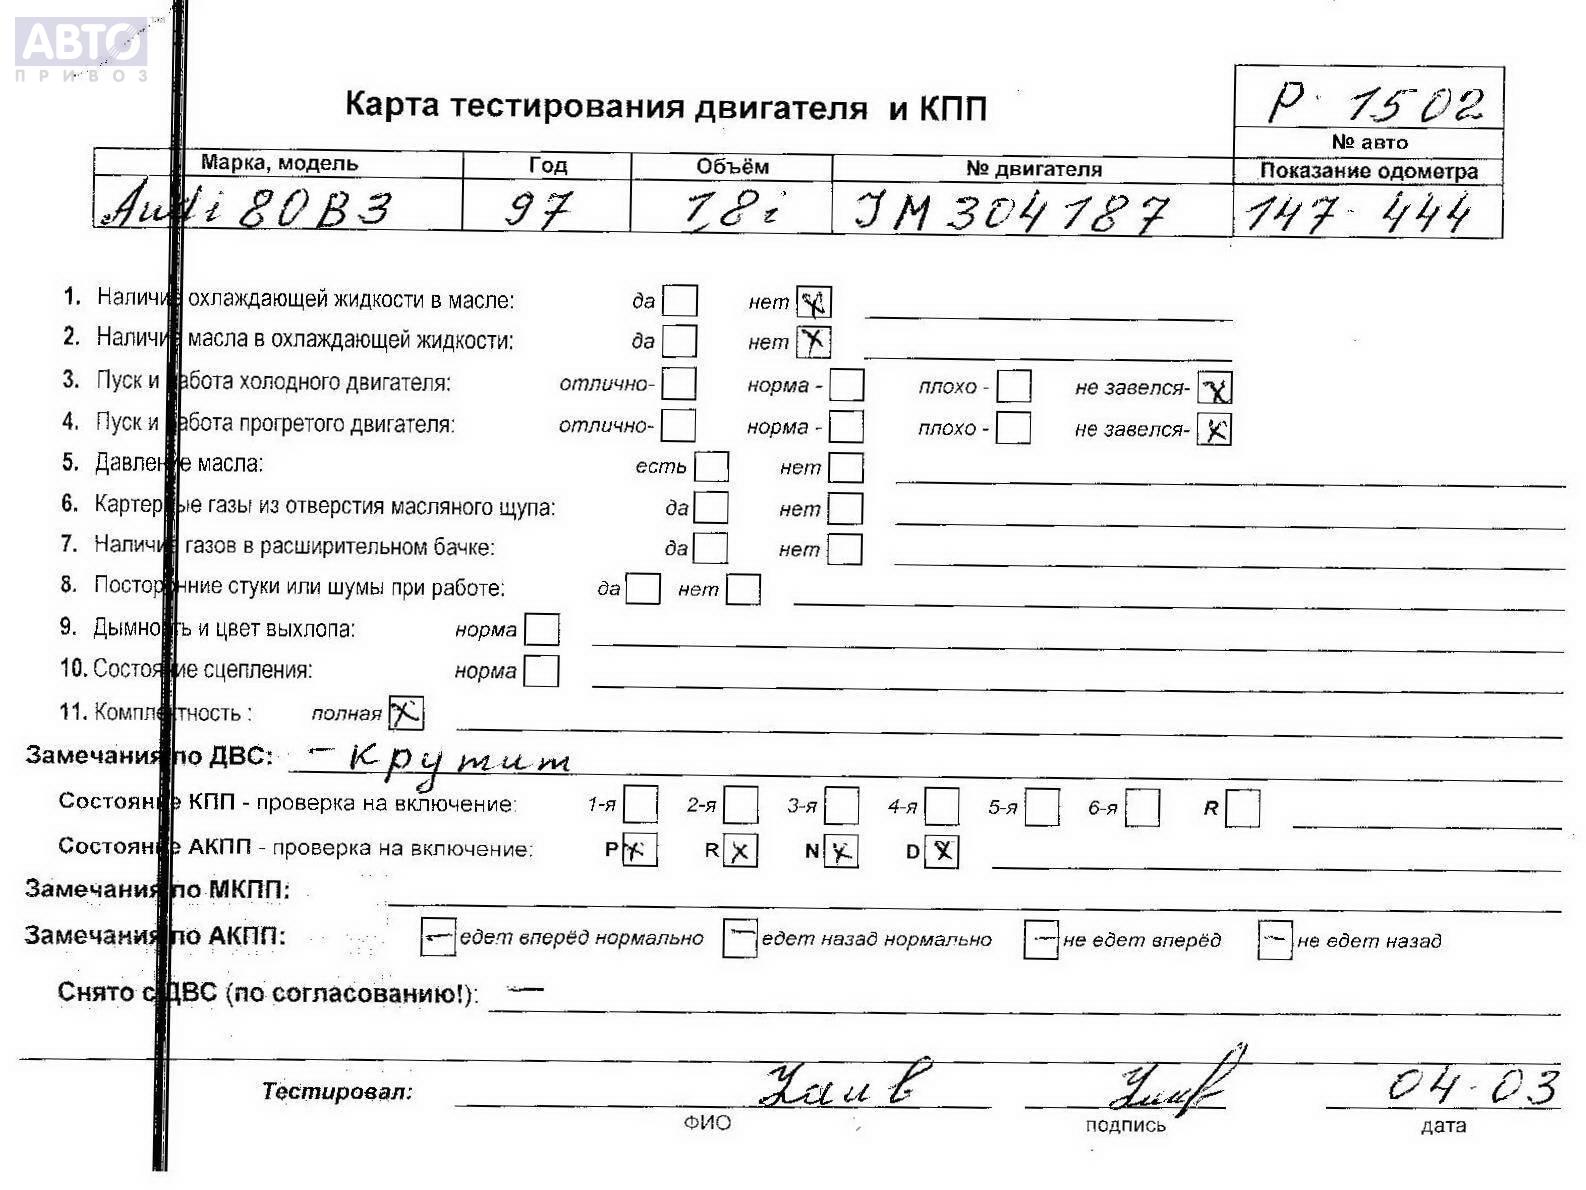 АВТО
ПРИВОЗ
Карта тестирования двигателя и КПП
Р· 1502
№ авто
Марка, модель Год Объём № двигателя Показание одометра
Audi 80 B3 97 1,8i JM 304187 147· 444
1. Наличие охлаждающей жидкости в масле: да нет x
2. Наличие масла в охлаждающей жидкости: да нет x
3. Пуск и работа холодного двигателя: отлично- норма - плохо - не завелся- x
4. Пуск и работа прогретого двигателя: отлично- норма - плохо - не завелся- x
5. Давление масла: есть нет
6. Картерные газы из отверстия масляного щупа: да нет
7. Наличие газов в расширительном бачке: да нет
8. Посторонние стуки или шумы при работе: да нет
9. Дымность и цвет выхлопа: норма
10. Состояние сцепления: норма
11. Комплектность : полная x
Замечания по ДВС: – крутит
Состояние КПП - проверка на включение: 1-я 2-я 3-я 4-я 5-я 6-я R
Состояние АКПП - проверка на включение: P x R x N x D x
Замечания по МКПП:
Замечания по АКПП: – едет вперёд нормально – едет назад нормально – не едет вперёд – не едет назад
Снято с ДВС (по согласованию!): –
Тестировал: 04-03
ФИО подпись дата